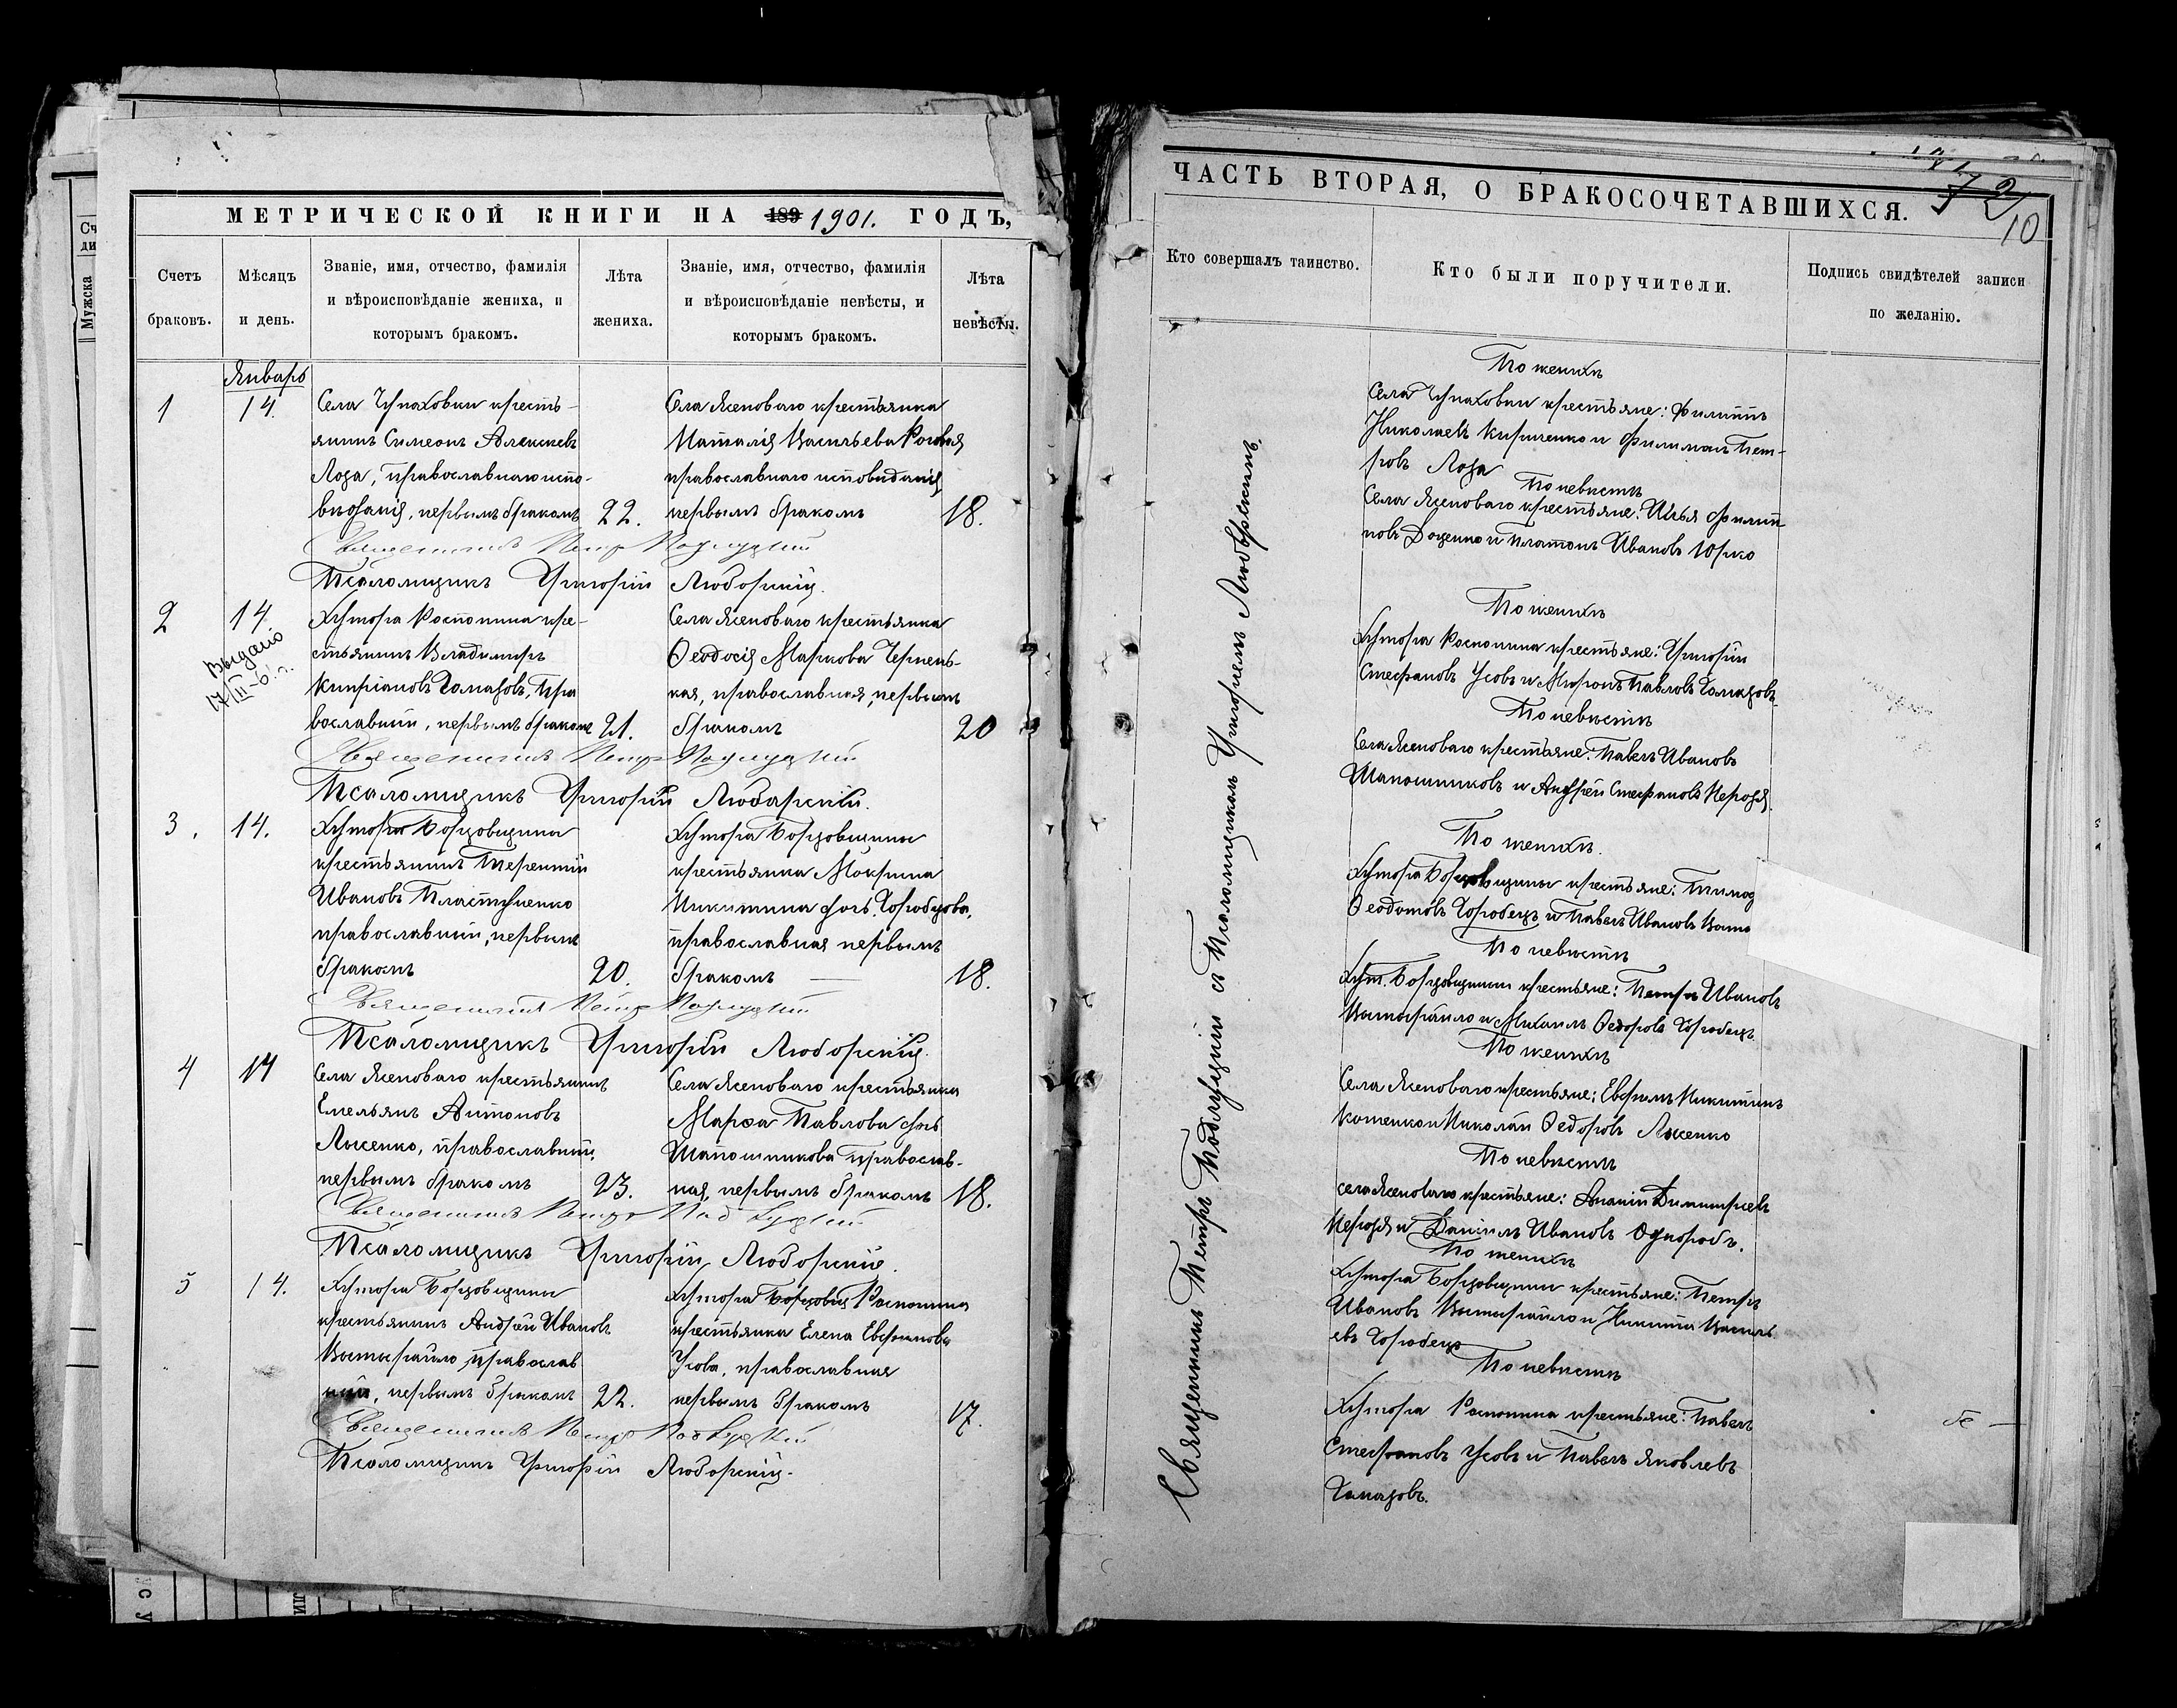 МЕТРИЧЕСКОЙ КНИГИ НА 189 1901. ГОДЪ,
Счетъ браковъ.
Мѣсяцъ и день.
Званіе, имя, отчество, фамилія
и вѣроисповѣданіе жениха, и
которымъ бракомъ.
Лѣта
жениха.
Званіе, имя, отчество, фамилія
и вѣроисповѣданіе невѣсты, и
которымъ бракомъ.
Лѣта
невѣсты.
Январь
1
14.
Села Чупаховки кресть-
янинъ Симеонъ Алексѣевъ
Лоза, православнаго испо-
вѣданія, первымъ бракомъ
22.
Села Ясеноваго крестьянка
Наталія Васильева
православнаго исповѣданія
первымъ бракомъ
18.
Священникъ Петръ Подлуцкій
Псаломщикъ Григорій Любарскій.
2
14
Выдано
Хутора Роспопина кре-
стьянинъ Владиміръ
Кипріановъ Хомазовъ, Пра
вославный, первымъ бракомъ
21.
Села Ясеноваго крестьянка
Ѳеодосія Маркова Чернень-
кая, православная, первымъ
бракомъ
20
Священникъ Петръ Подлуцкій
Псаломщикъ Григорій Любарскій.
3.
14.
Хутора Борзовщины
крестьянинъ Терентій
Ивановъ Пластуненко
православный, первымъ
бракомъ
20.
Хутора Борзовщины
крестьянка Мокрина
Никитина дочь Горобцова,
православная первымъ
бракомъ
18.
Священникъ Петръ Подлуцкій
Псаломщикъ Григорій Любарскій.
4
14
Села Ясеноваго крестьянинъ
Емельянъ Антоновъ
Лысенко, православный,
первымъ бракомъ
23.
Села Ясеноваго крестьянка
Марѳа Павлова дочь
Шапошникова православ-
ная, первымъ бракомъ
18.
Священникъ Петръ Подлуцкій
Псаломщикъ Григорій Любарскій.
5
14.
Хутора Борзовщины
крестьянинъ Андрей Ивановъ
православ
ный, первымъ бракомъ
22.
Хутора Борзовщ Роспопина
крестьянка Елена Евфимова
Усова, православная
первымъ бракомъ
17.
Священникъ Петръ Подлуцкій
Псаломщикъ Григорій Любарскій.
ЧАСТЬ ВТОРАЯ, О БРАКОСОЧЕТАВШИХСЯ.
10
Кто совершалъ таинство.
Кто были поручители.
Подпись свидѣтелей записи
по желанію.
Священникъ Петръ Подлуцкій съ Псаломщикомъ Григоріемъ Любарскимъ.
По женихѣ
Села Чупаховки крестьяне: Филиппъ
Николаевъ Кириченко и Филимонъ Пет-
ровъ Лоза
По невѣстѣ
Села Ясеноваго крестьяне: Илья Филип
повъ Доценко и Платонъ Ивановъ Юрко
По женихѣ
Хутора Роспопина крестьяне: Григорій
Стефановъ Усовъ и Миронъ Павловъ Хомазовъ
По невѣстѣ
Села Ясеноваго крестьяне: Павелъ Ивановъ
Шапошниковъ и Андрей Стефановъ
По женихѣ.
Хутора Борзовщины крестьяне:
Ѳеодотовъ Горобецъ и Павелъ Ивановъ
По невѣстѣ
Хут. Борзовщины крестьяне: Петръ Ивановъ
и Михаилъ Ѳедоровъ Горобецъ
По женихѣ
Села Ясеноваго крестьяне: Евфимъ Никитинъ
Котенко и Николай Ѳедоровъ Лысенко
По невѣстѣ
села Ясеноваго крестьяне: Ананій Димитріевъ
и Даніилъ Ивановъ Однородъ.
По женихѣ
Хутора Борзовщины крестьяне: Петръ
Ивановъ и Никита Василь
евъ Горобецъ
По невѣстѣ
Хутора Роспопина крестьяне: Павелъ
Стефановъ Усовъ и Павелъ Яковлевъ
Хомазовъ.